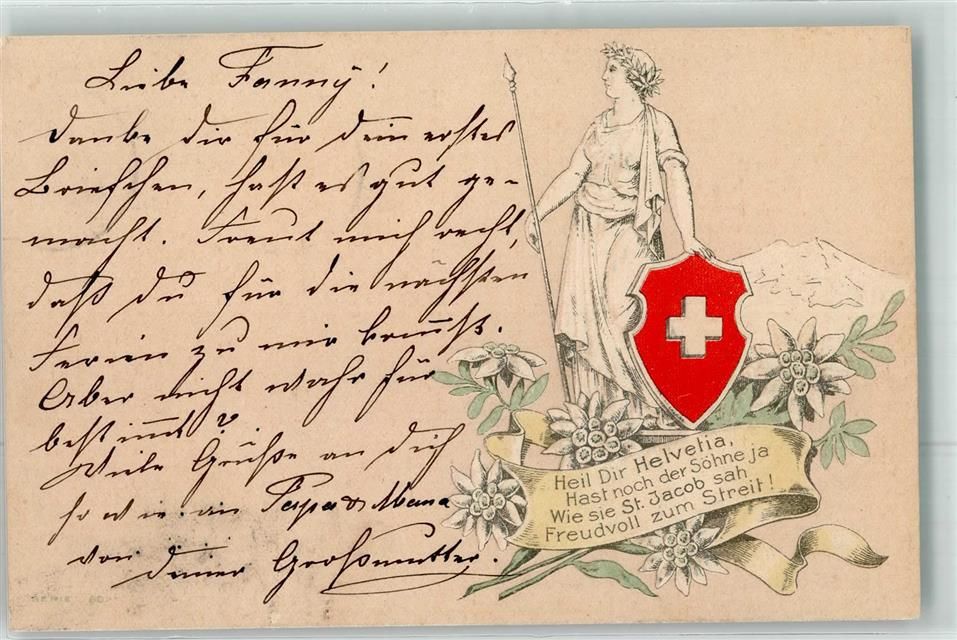 Liebe Fanny!
Danke dir für dein erstes
Briefchen, hast es gut ge-
macht. Freut mich recht,
daß du für die nächsten
Ferien zu mir kommst.
Aber nicht wahr für
bestimmt?
Viele Grüße an dich
so wie an Papa & Mama
von deiner Großmutter.
Heil Dir Helvetia,
Hast noch der Söhne ja
Wie sie St. Jacob sah,
Freudvoll zum Streit!
SERIE 60